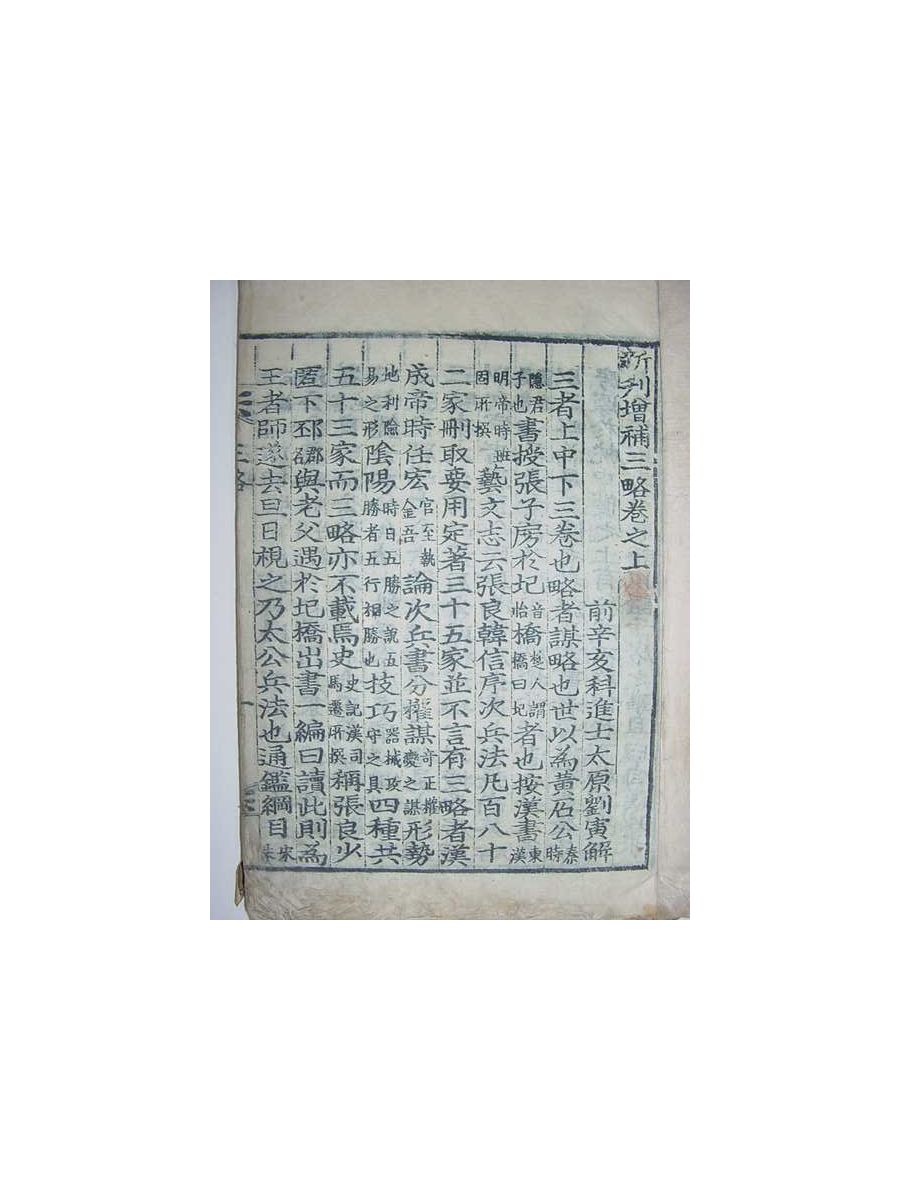 新刋增補三略卷之上
前辛亥科進士太原劉寅解
三者上中下三卷也略者謀略也世以為黃石公秦時
隱君子也書授張子房於圯音怡橋楚人謂橋曰圯者也按漢書東漢
明帝時班固所撰藝文志云張良韓信序次兵法凡百八十
二家刪取要用定著三十五家並不言有三略者漢
成帝時任宏官至執金吾論次兵書分權謀奇正權變之謀形勢
地利險易之形陰陽時日五勝之說五勝者五行相勝也技巧器械攻守之具四種共
五十三家而三略亦不載焉史史記漢司馬遷所撰稱張良少
匿下邳郡名與老父遇於圯橋出書一編曰讀此則為
王者師遂去旦日視之乃太公兵法也通鑑綱目宋朱
三略